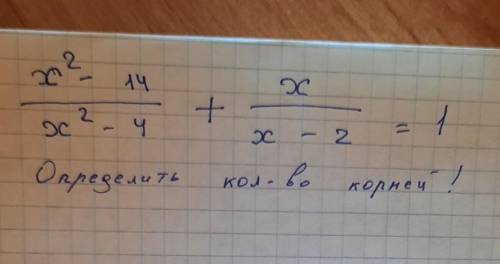 (x² - 14)/(x² - 4) + x/(x - 2) = 1
Определить кол-во корней!